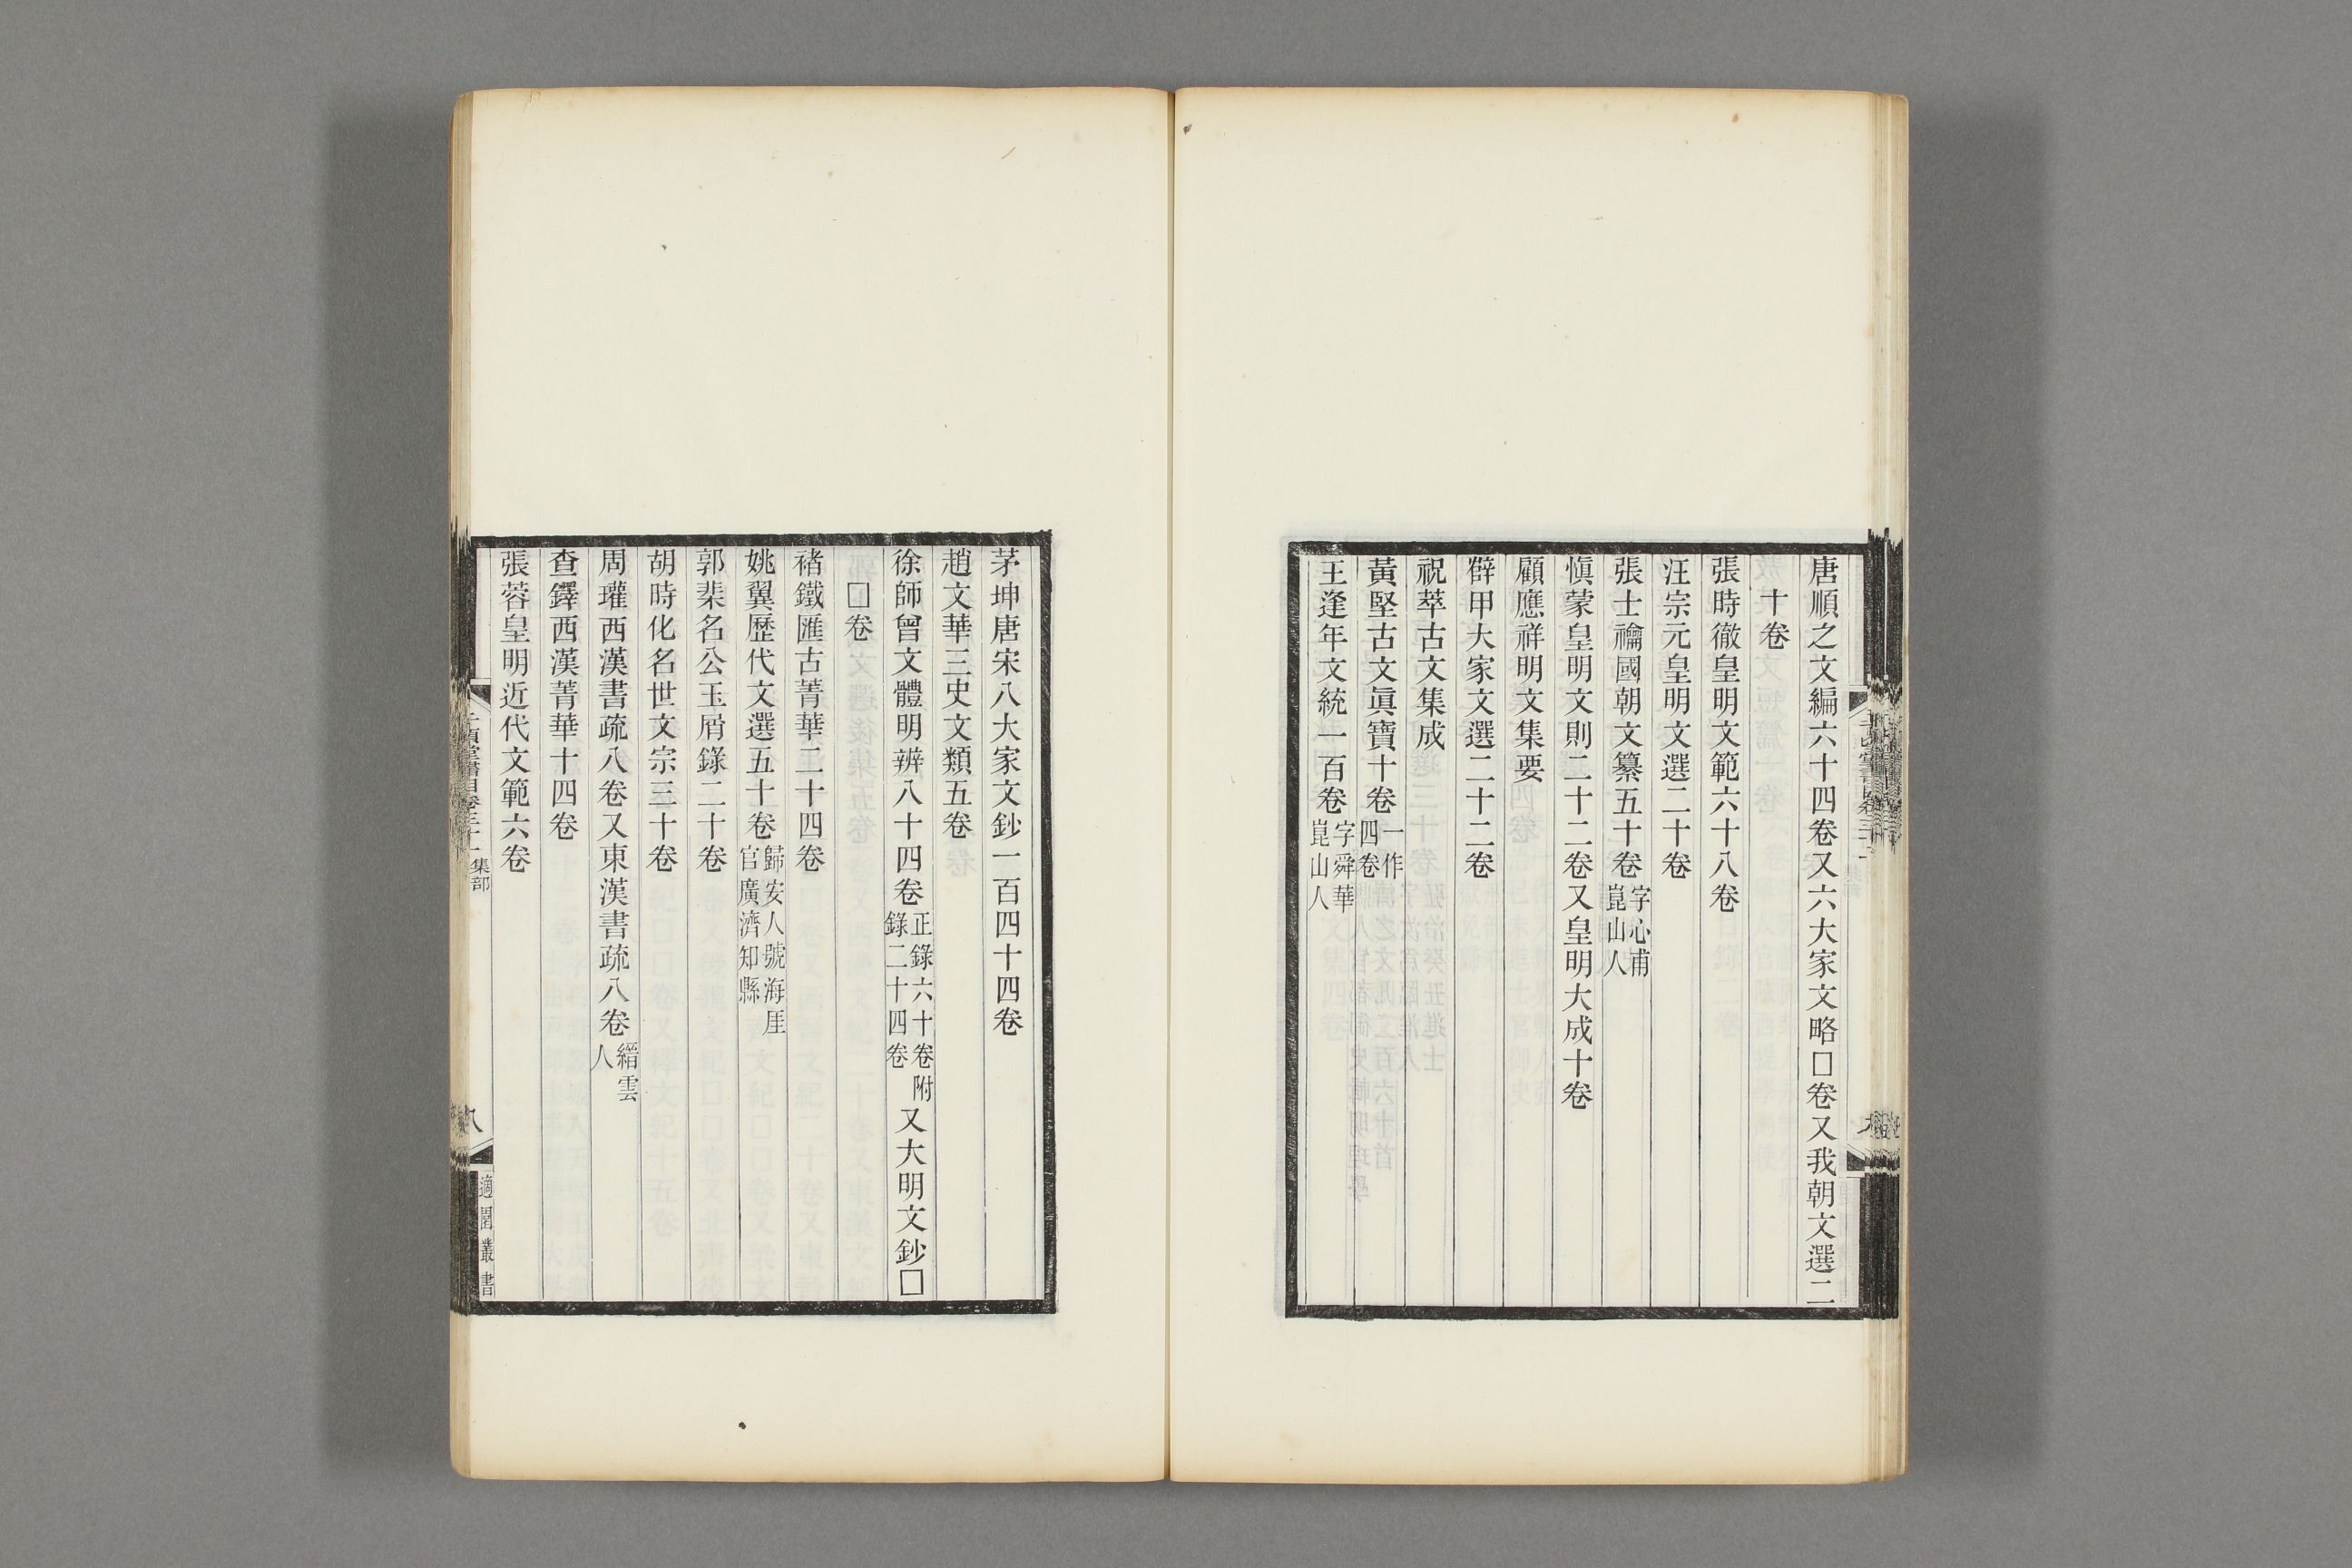 唐順之文編六十四卷又六大家文略□卷又我朝文選二
十卷
張時徹皇明文範六十八卷
汪宗元皇明文選二十卷
張士瀹國朝文纂五十卷字心甫
崑山人
愼蒙皇明文則二十二卷又皇明大成十卷
顧應祥明文集要
薛甲大家文選二十二卷
祝萃古文集成
黃堅古文眞寶十卷一作
四卷
王逢年文統一百卷字舜華
崑山人
茅坤唐宋八大家文鈔一百四十四卷
趙文華三史文類五卷
徐師曾文體明辨八十四卷正錄六十卷附
錄二十四卷又大明文鈔□
□卷
褚鐵匯古菁華二十四卷
姚翼歷代文選五十卷歸安人號海厓
官廣濟知縣
郭棐名公玉屑錄二十卷
胡時化名世文宗三十卷
周瓘西漢書疏八卷又東漢書疏八卷縉雲
人
查鐸西漢菁華十四卷
張蓉皇明近代文範六卷
千頃堂書目卷三十一 集部
八
適園叢書